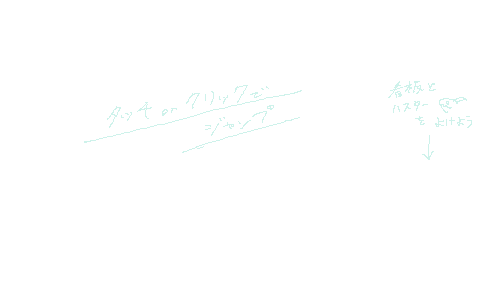 タッチ or クリックで
ジャンプ
看板と
ハスター
をよけよう